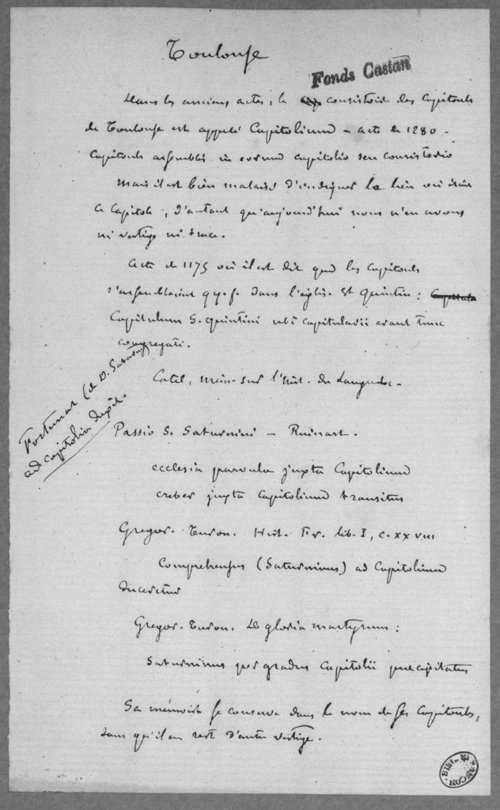 Toulouse
Fonds Castan
Dans les anciens actes, le consistoire des Capitouls
de Toulouse est appelé Capitolium – acte de 1280.
Capitouls assemblés in eorum capitolio seu consistorio
Mais il est bien malaisé d'indiquer le lieu où était
ce Capitole, d'autant qu'aujourd'hui nous n'en avons
ni vestige ni trace.
Acte de 1175 où il est dit que les Capitouls
s'assemblaient qqf. dans l'église St Quintin :
Capitulum S. Quintini ubi capitularii erant tunc
congregati.
Catel, Mém. sur l'hist. du Languedoc.
Fortunat (de D. Saturnino)
ad capitolia
Passio S. Saturnini – Ruinart.
ecclesia parvula juxta Capitolium
creber juxta Capitolium transitus
Gregor. Turon. Hist. Fr. lib. I, c. xxviii
Comprehensus (Saturninus) ad Capitolium
duceretur
Gregor. Turon. De gloria martyrum :
Saturninus per gradus Capitolii precipitatus
Sa mémoire se conserve dans le nom de ses Capitouls,
sans qu'il en reste d'autre vestige.